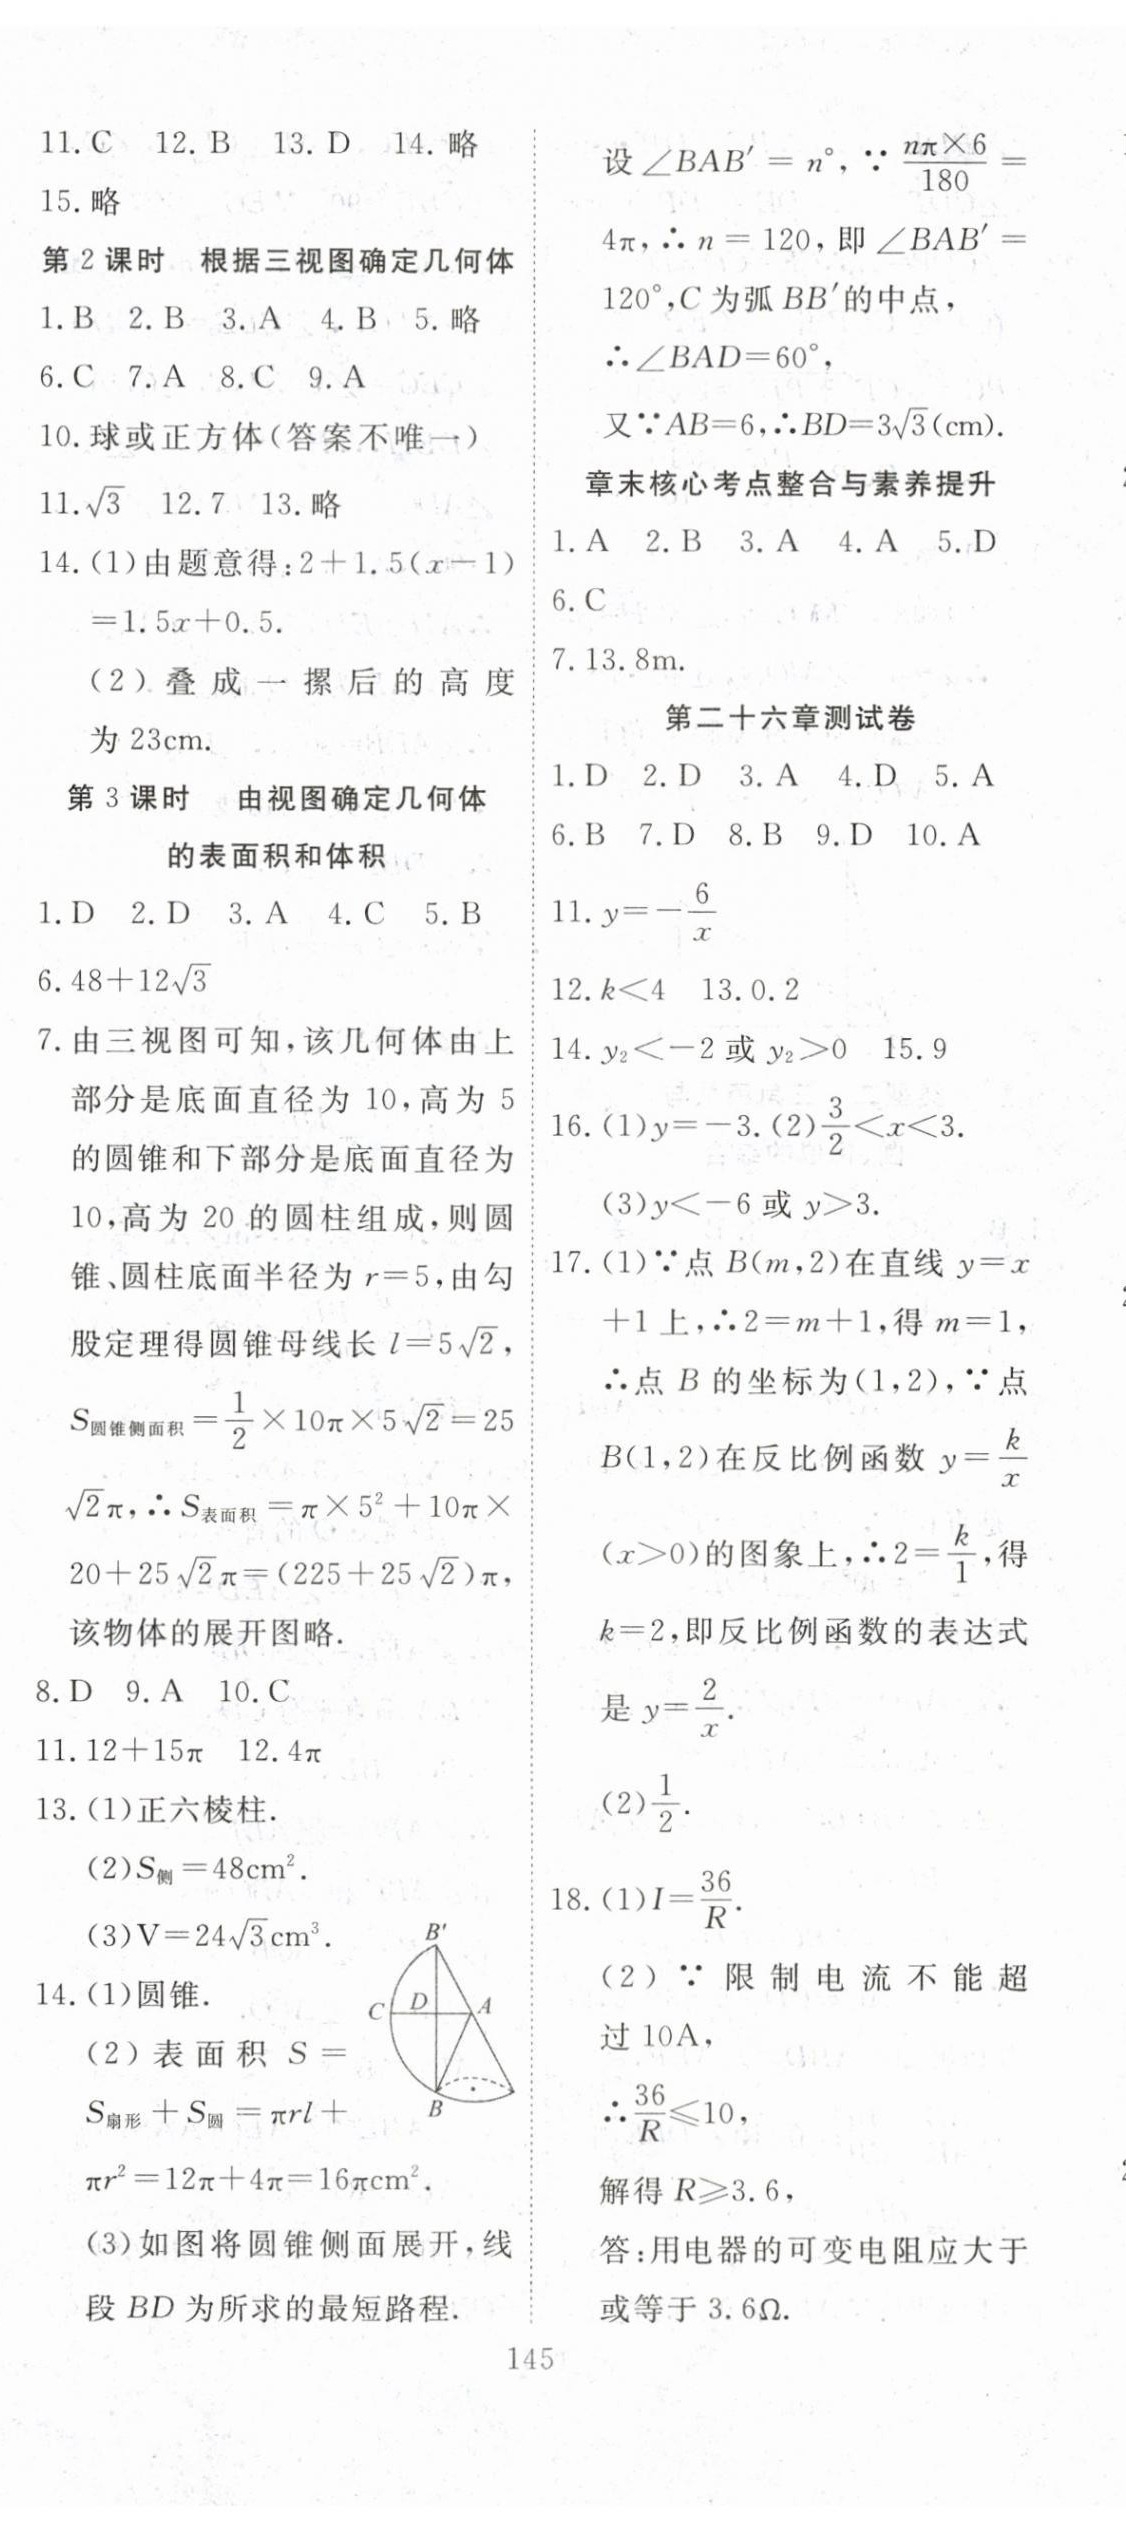 11. C  12. B  13. D  14. 略
15. 略
第 2 课时  根据三视图确定几何体
1. B  2. B  3. A  4. B  5. 略
6. C  7. A  8. C  9. A
10. 球或正方体(答案不唯一)
11. √3  12. 7  13. 略
14. (1)由题意得:2+1.5(x-1)
=1.5x+0.5.
(2)叠成一摞后的高度
为 23cm.
第 3 课时  由视图确定几何体
的表面积和体积
1. D  2. D  3. A  4. C  5. B
6. 48+12√3
7. 由三视图可知,该几何体由上
部分是底面直径为 10,高为 5
的圆锥和下部分是底面直径为
10,高为 20 的圆柱组成,则圆
锥、圆柱底面半径为 r=5,由勾
股定理得圆锥母线长 l=5√2,
S圆锥侧面积=1/2×10π×5√2=25
√2π,∴S表面积=π×5²+10π×
20+25√2π=(225+25√2)π,
该物体的展开图略.
8. D  9. A  10. C
11. 12+15π  12. 4π
13. (1)正六棱柱.
(2)S侧=48cm².
(3)V=24√3cm³.
14. (1)圆锥.
(2)表面积 S=
S扇形+S圆=πrl+
πr²=12π+4π=16πcm².
(3)如图将圆锥侧面展开,线
段 BD 为所求的最短路程.
B′
C
D
A
B
设∠BAB′=n°,∵nπ×6/180=
4π,∴n=120,即∠BAB′=
120°,C 为弧 BB′的中点,
∴∠BAD=60°,
又∵AB=6,∴BD=3√3(cm).
章末核心考点整合与素养提升
1. A  2. B  3. A  4. A  5. D
6. C
7. 13.8m.
第二十六章测试卷
1. D  2. D  3. A  4. D  5. A
6. B  7. D  8. B  9. D  10. A
11. y=-6/x
12. k<4  13. 0.2
14. y₂<-2 或 y₂>0  15. 9
16. (1)y=-3. (2)3/2<x<3.
(3)y<-6 或 y>3.
17. (1)∵点 B(m,2)在直线 y=x
+1 上,∴2=m+1,得 m=1,
∴点 B 的坐标为(1,2),∵点
B(1,2)在反比例函数 y=k/x
(x>0)的图象上,∴2=k/1,得
k=2,即反比例函数的表达式
是 y=2/x.
(2)1/2.
18. (1)I=36/R.
(2)∵限制电流不能超
过 10A,
∴36/R≤10,
解得 R≥3.6,
答:用电器的可变电阻应大于
或等于 3.6Ω.
145